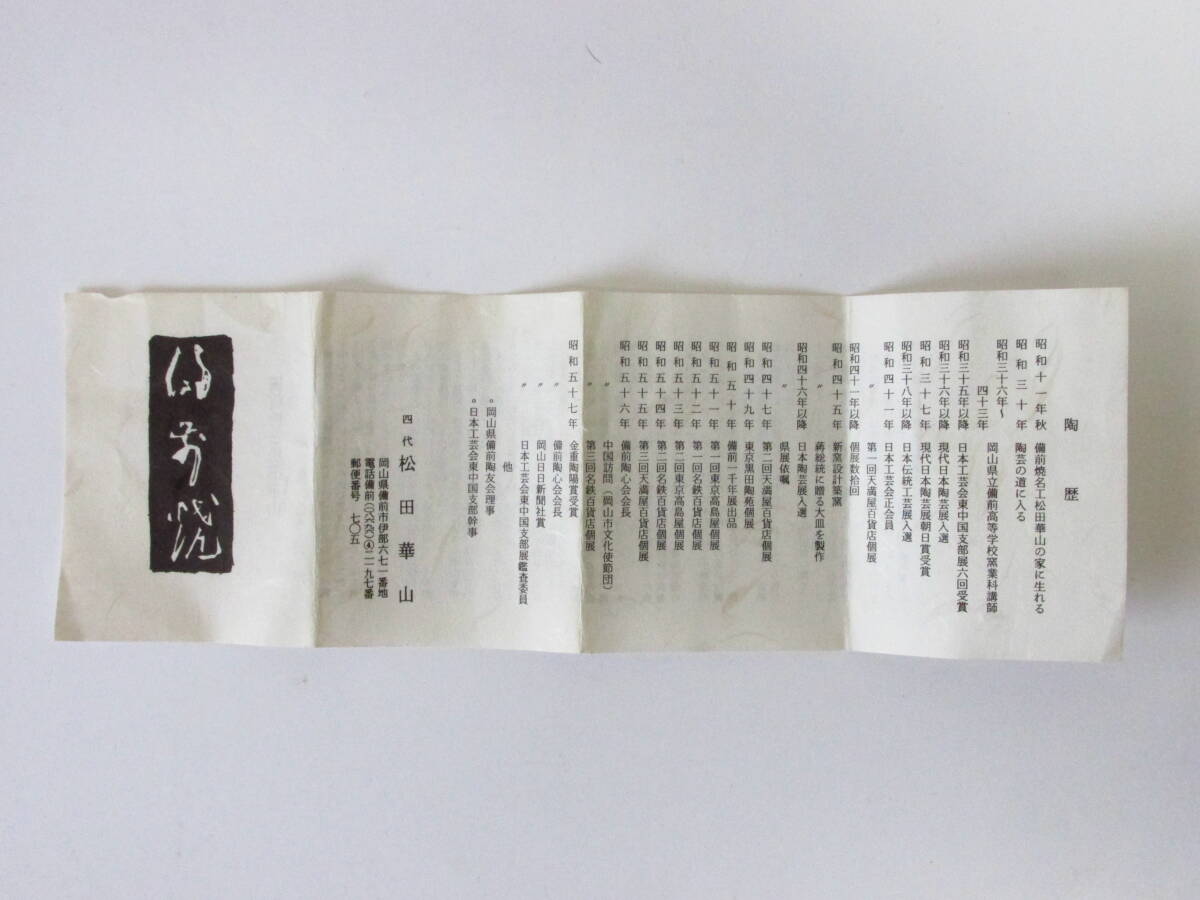 陶歴
昭和十一年秋 備前焼名工松田華山の家に生れる
昭和三十年 陶芸の道に入る
昭和三十六年～四十三年 岡山県立備前高等学校窯業科講師
昭和三十五年以降 日本工芸会東中国支部展六回受賞
昭和三十六年以降 現代日本陶芸展入選
昭和三十七年 現代日本陶芸展朝日賞受賞
昭和三十八年以降 日本伝統工芸展入選
昭和四十一年 日本工芸会正会員
〃 第一回天満屋百貨店個展
昭和四十一年以降 個展数拾回
昭和四十五年 新窯設計築窯
〃 蒋総統に贈る大皿を製作
昭和四十六年以降 日本陶芸展入選
〃 県展依嘱
昭和四十七年 第二回天満屋百貨店個展
昭和四十九年 東京黒田陶苑個展
昭和五十年 備前一千年展出品
昭和五十一年 第一回東京高島屋個展
昭和五十二年 第一回名鉄百貨店個展
昭和五十三年 第二回東京高島屋個展
昭和五十四年 第二回名鉄百貨店個展
昭和五十五年 第三回天満屋百貨店個展
昭和五十六年 備前陶心会会長
〃 中国訪問（岡山市文化使節団）
〃 第三回名鉄百貨店個展
昭和五十七年 金重陶陽賞受賞
〃 備前陶心会会長
〃 岡山日日新聞社賞
〃 日本工芸会東中国支部展鑑査委員
他
○岡山県備前陶友会理事
○日本工芸会東中国支部幹事
四代 松田華山
岡山県備前市伊部六七一番地
電話備前（〇八六九六）④二一九七番
郵便番号 七〇五
備前焼